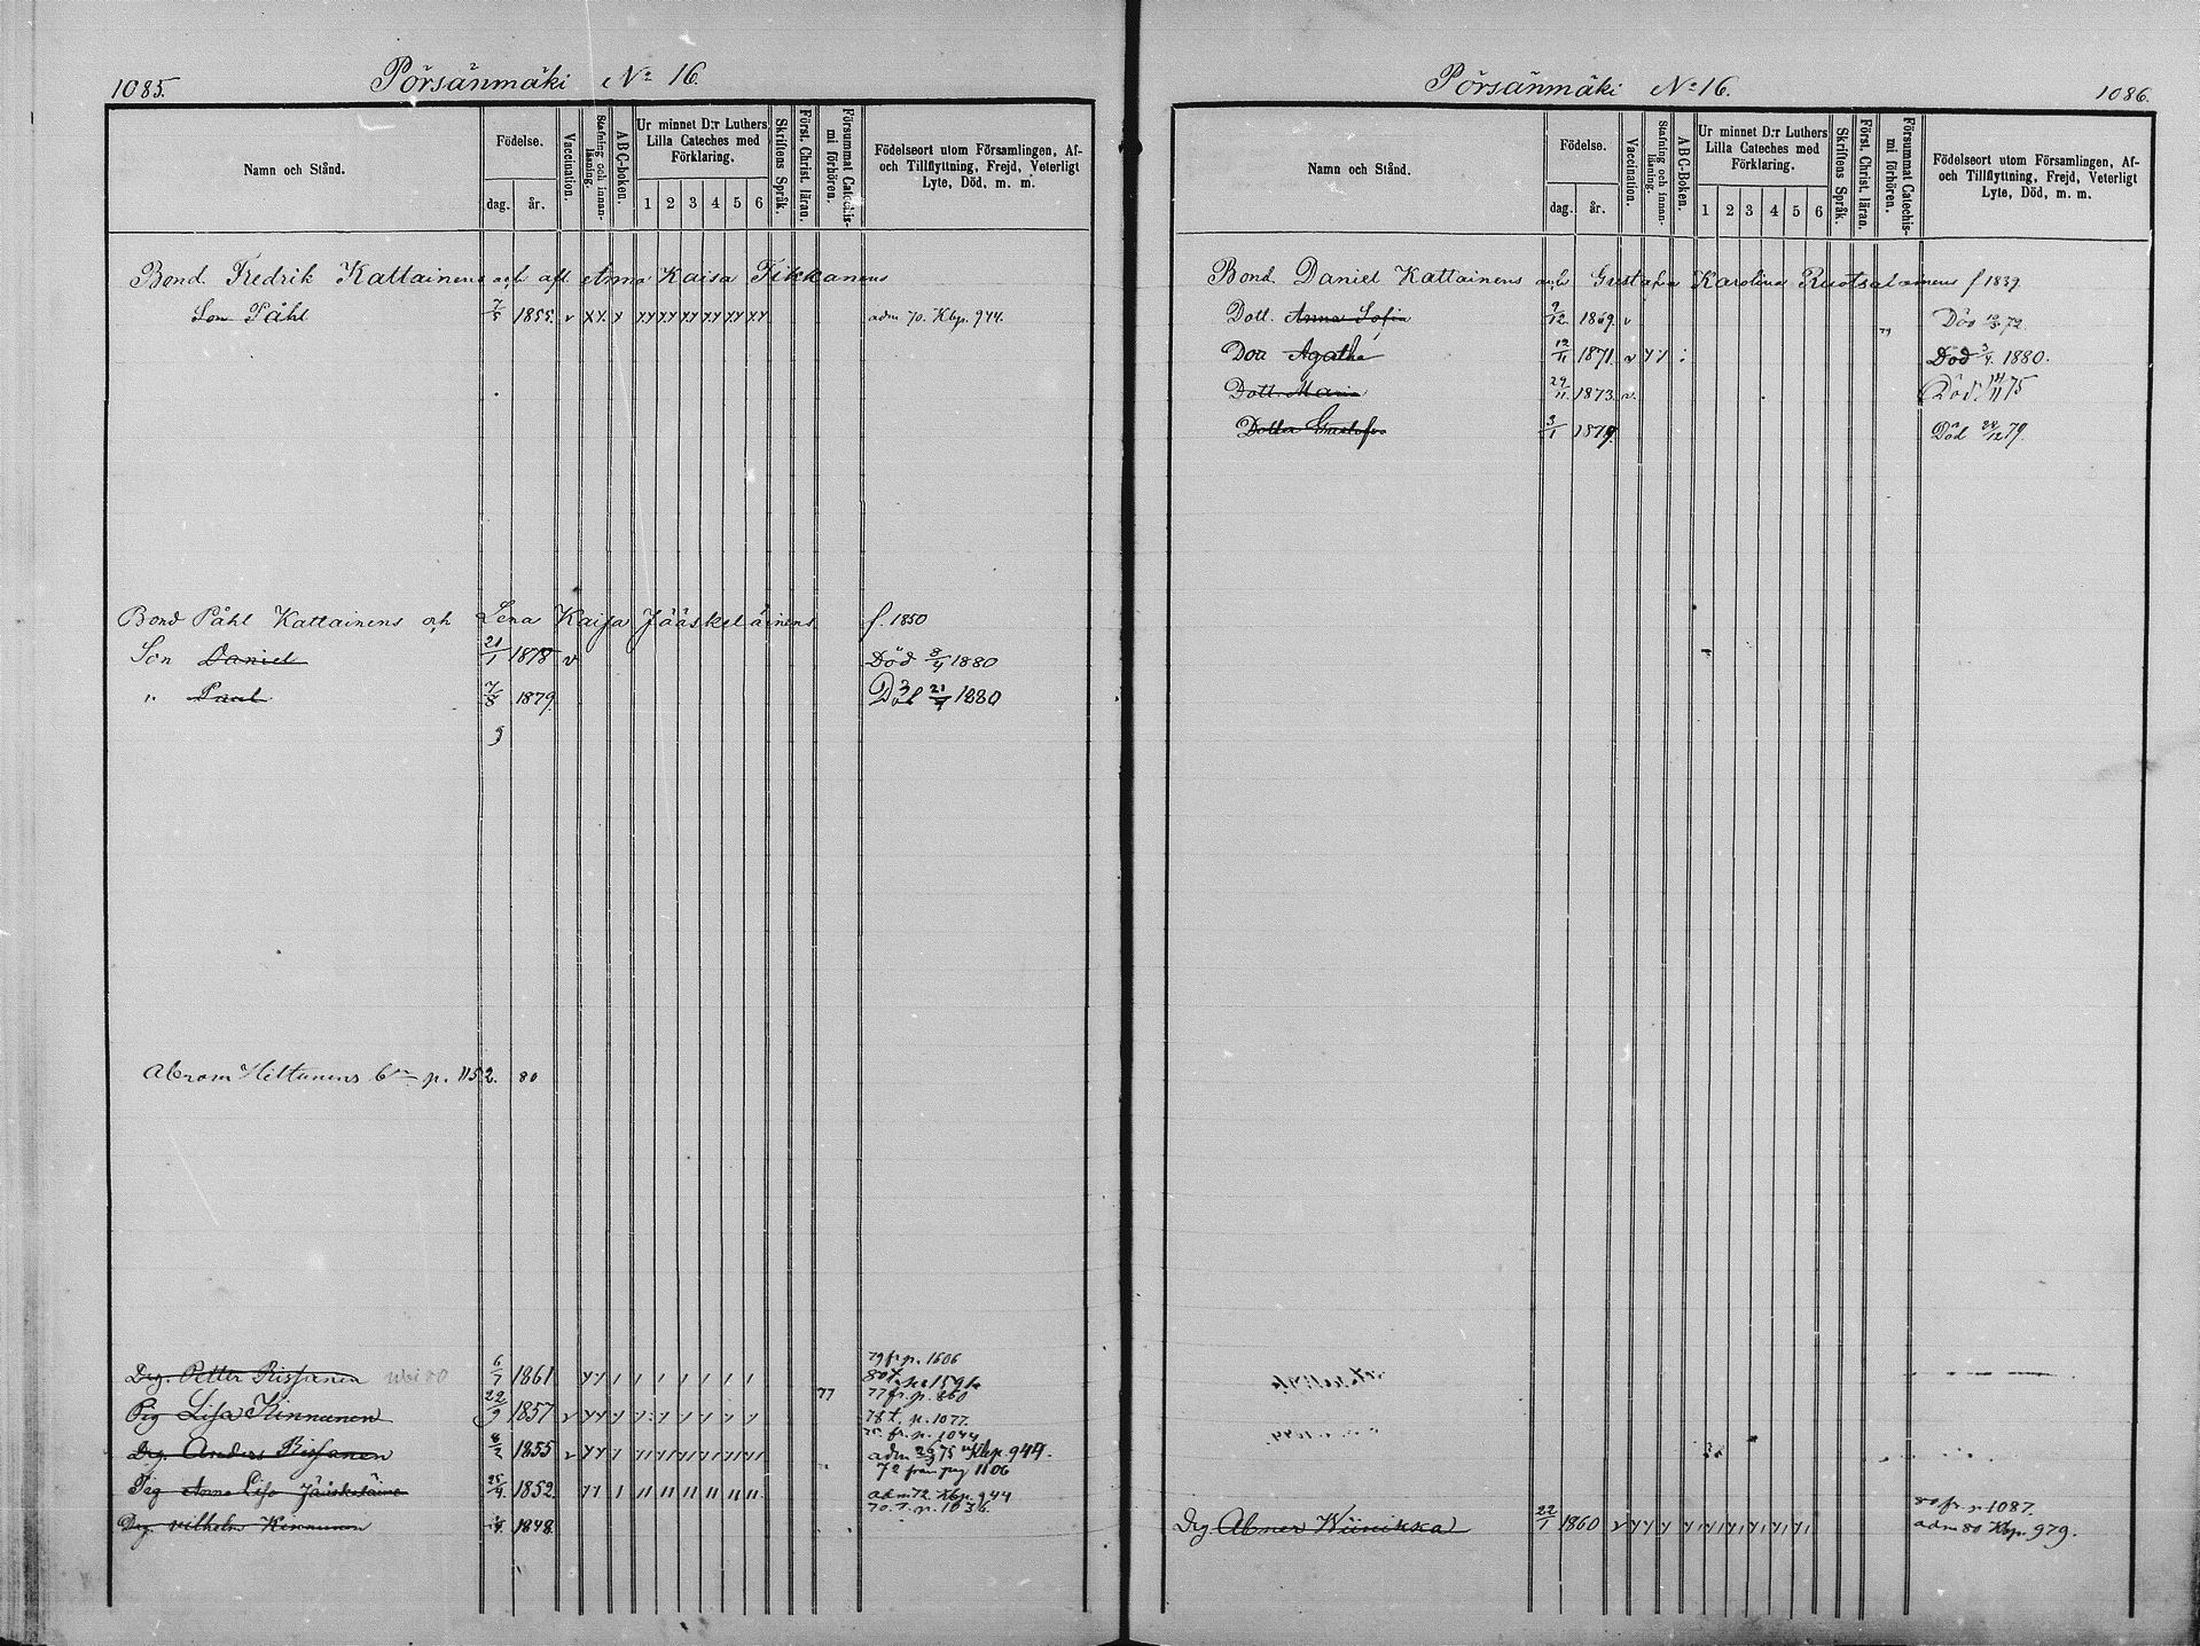 1085. Pörsänmäki No 16.
Namn och Stånd. Födelse. dag. år. Vaccination. Stafning och innanläsning. ABC-boken. Ur minnet D:r Luthers Lilla Cateches med Förklaring. 1 2 3 4 5 6 Skriftens Språk. Först. Christ. läran. Försummat Catechismi förhören. Födelseort utom Församlingen, Af- och Tillflyttning, Frejd, Veterligt Lyte, Död, m. m.
Bond. Fredrik Kattainens och afl. Anna Kaisa Tikkanens
Son Påhl 7/5 1855. v adm 70. Kbp. 944.
Bond Påhl Kattainens och Lena Kaisa Jääskeläinens f. 1850
Son Daniel 21/1 1878 v Död 8/4 1880
" Paul 7/8 1879. Död 21/4 1880
Abram Hittunens p. 1152. 80
79 fr p. 1606
Drg. Petter Rissanen 6/7 1861 80 t.
77 fr. p. 860
Pig Lisa Kinnunen 22/9 1857 v 78 t. p. 1077.
75. fr. p. 1044
Drg. Anders Rissanen 8/2 1855 v adm 75 Kbp. 944.
72 från pag 1106
Pig Anna Lisa Jääskeläinen 25/4. 1852. adm 72. Kbp. 944
70. t. p. 1036.
Drg. Vilhelm Kinnunen 1848.
Pörsänmäki No 16. 1086.
Namn och Stånd. Födelse. dag. år. Vaccination. Stafning och innanläsning. ABC-Boken. Ur minnet D:r Luthers Lilla Cateches med Förklaring. 1 2 3 4 5 6 Skriftens Språk. Först. Christ. läran. Försummat Catechismi förhören. Födelseort utom Församlingen, Af- och Tillflyttning, Frejd, Veterligt Lyte, Död, m. m.
Bond. Daniel Kattainens och Gustafva Karolina Ruotsalainens f 1839
Dott. Anna Sofia 9/12. 1869. v Död 72.
Dott Agatha 12/11 1871. v Död 3/4. 1880.
Dott. Maria 29/11. 1873. v. Död. 14/11 75
Dotter Gustafva 3/1 1879. Död 24/12 79.
80 fr. p. 1087.
Drg. Abner Wiinikka 22/1 1860 v adm 80 Kbp. 979.